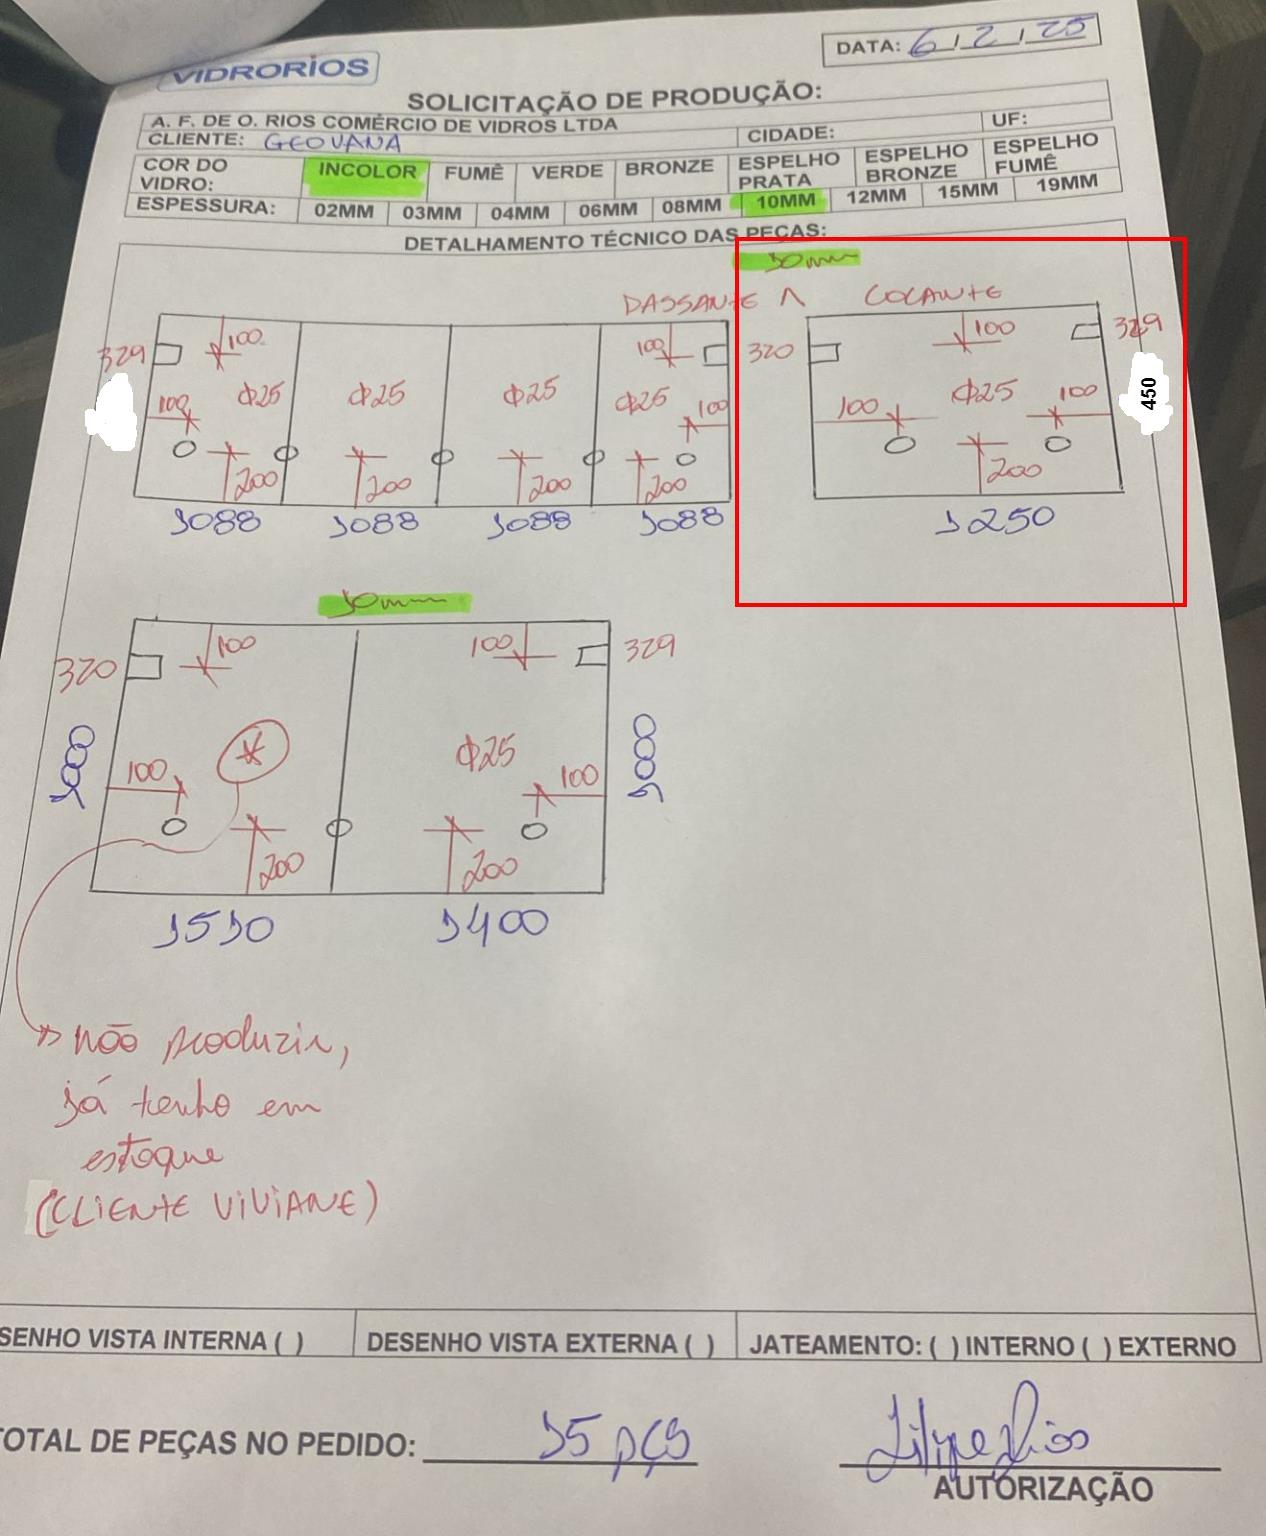 VIDRORIOS
DATA: 6/2/25
SOLICITAÇÃO DE PRODUÇÃO:
A. F. DE O. RIOS COMÉRCIO DE VIDROS LTDA
CLIENTE: GEOVANA CIDADE: UF:
COR DO VIDRO: INCOLOR FUMÊ VERDE BRONZE ESPELHO PRATA ESPELHO BRONZE ESPELHO FUMÊ
ESPESSURA: 02MM 03MM 04MM 06MM 08MM 10MM 12MM 15MM 19MM
DETALHAMENTO TÉCNICO DAS PEÇAS:
10mm
PASSANTE COLANTE
329 100 100 320 100 329
100 Φ25 Φ25 Φ25 Φ25 100 100 Φ25 100 450
200 200 200 200 200
1088 1088 1088 1088 1250
10mm
320 100 100 329
1000 100 * Φ25 100 1000
200 200
1510 1400
não produzir,
já tenho em
estoque
(CLIENTE VIVIANE)
SENHO VISTA INTERNA ( ) DESENHO VISTA EXTERNA ( ) JATEAMENTO: ( ) INTERNO ( ) EXTERNO
TOTAL DE PEÇAS NO PEDIDO: 15 pçs
AUTORIZAÇÃO